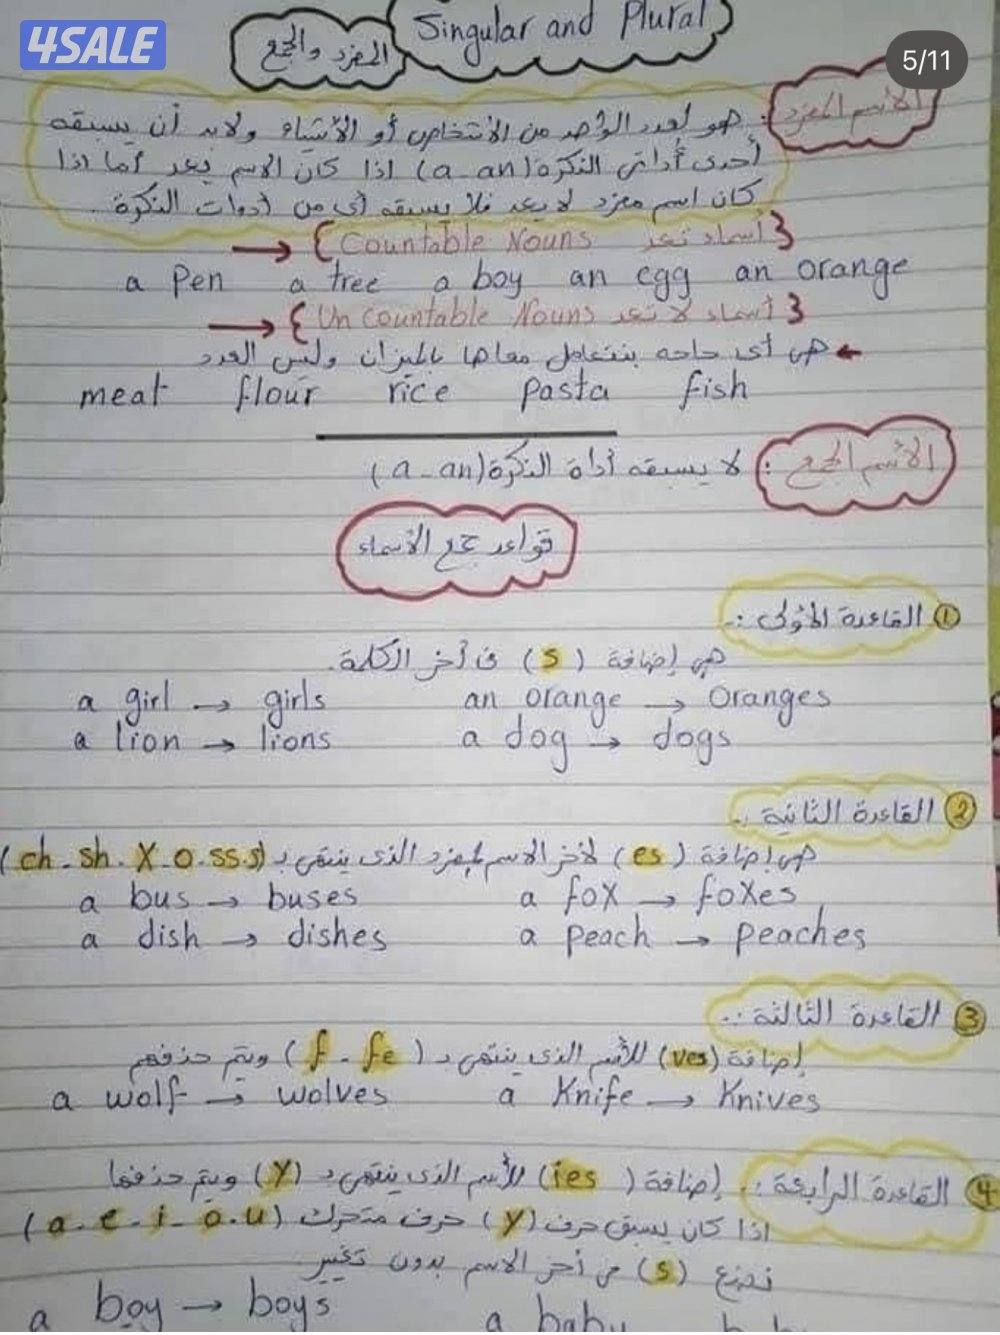 4SALE
5/11
Singular and Plural
المفرد والجمع
الأسم المفرد : هو لعدد الواحد من الأشخاص أو الأشياء ولابد أن يسبقه
أحدى أداتى النكرة (a - an) اذا كان الاسم يعد أما اذا
كان اسم مفرد لا يعد فلا يسبقه أى من أدوات النكرة
{أسماء تعد Countable Nouns} →
a Pen a tree a boy an egg an orange
{أسماء لا تعد Un Countable Nouns} →
← هى أى حاجه بنتعامل معاها بالميزان وليس العدد
meat flour rice pasta fish
الأسم الجمع : لا يسبقه أداة النكرة (a - an)
قواعد جمع الأسماء
① القاعدة الأولى :-
هى إضافة (s) فى أخر الكلمة.
a girl → girls an orange → oranges
a lion → lions a dog → dogs
② القاعدة الثانية :-
هى إضافة (es) لأخر الاسم المفرد الذى ينتهى بـ (ch - sh - X - o - ss - s)
a bus → buses a fox → foxes
a dish → dishes a peach → peaches
③ القاعدة الثالثة :-
إضافة (ves) للأسم الذى ينتهى بـ (f - fe) ويتم حذفهم
a wolf → wolves a Knife → Knives
④ القاعدة الرابعة :- إضافة (ies) للأسم الذى ينتهى بـ (y) ويتم حذفها
اذا كان يسبق حرف (y) حرف متحرك (a - e - i - o - u)
نضع (s) فى أخر الاسم بدون تغيير
a boy → boys a baby